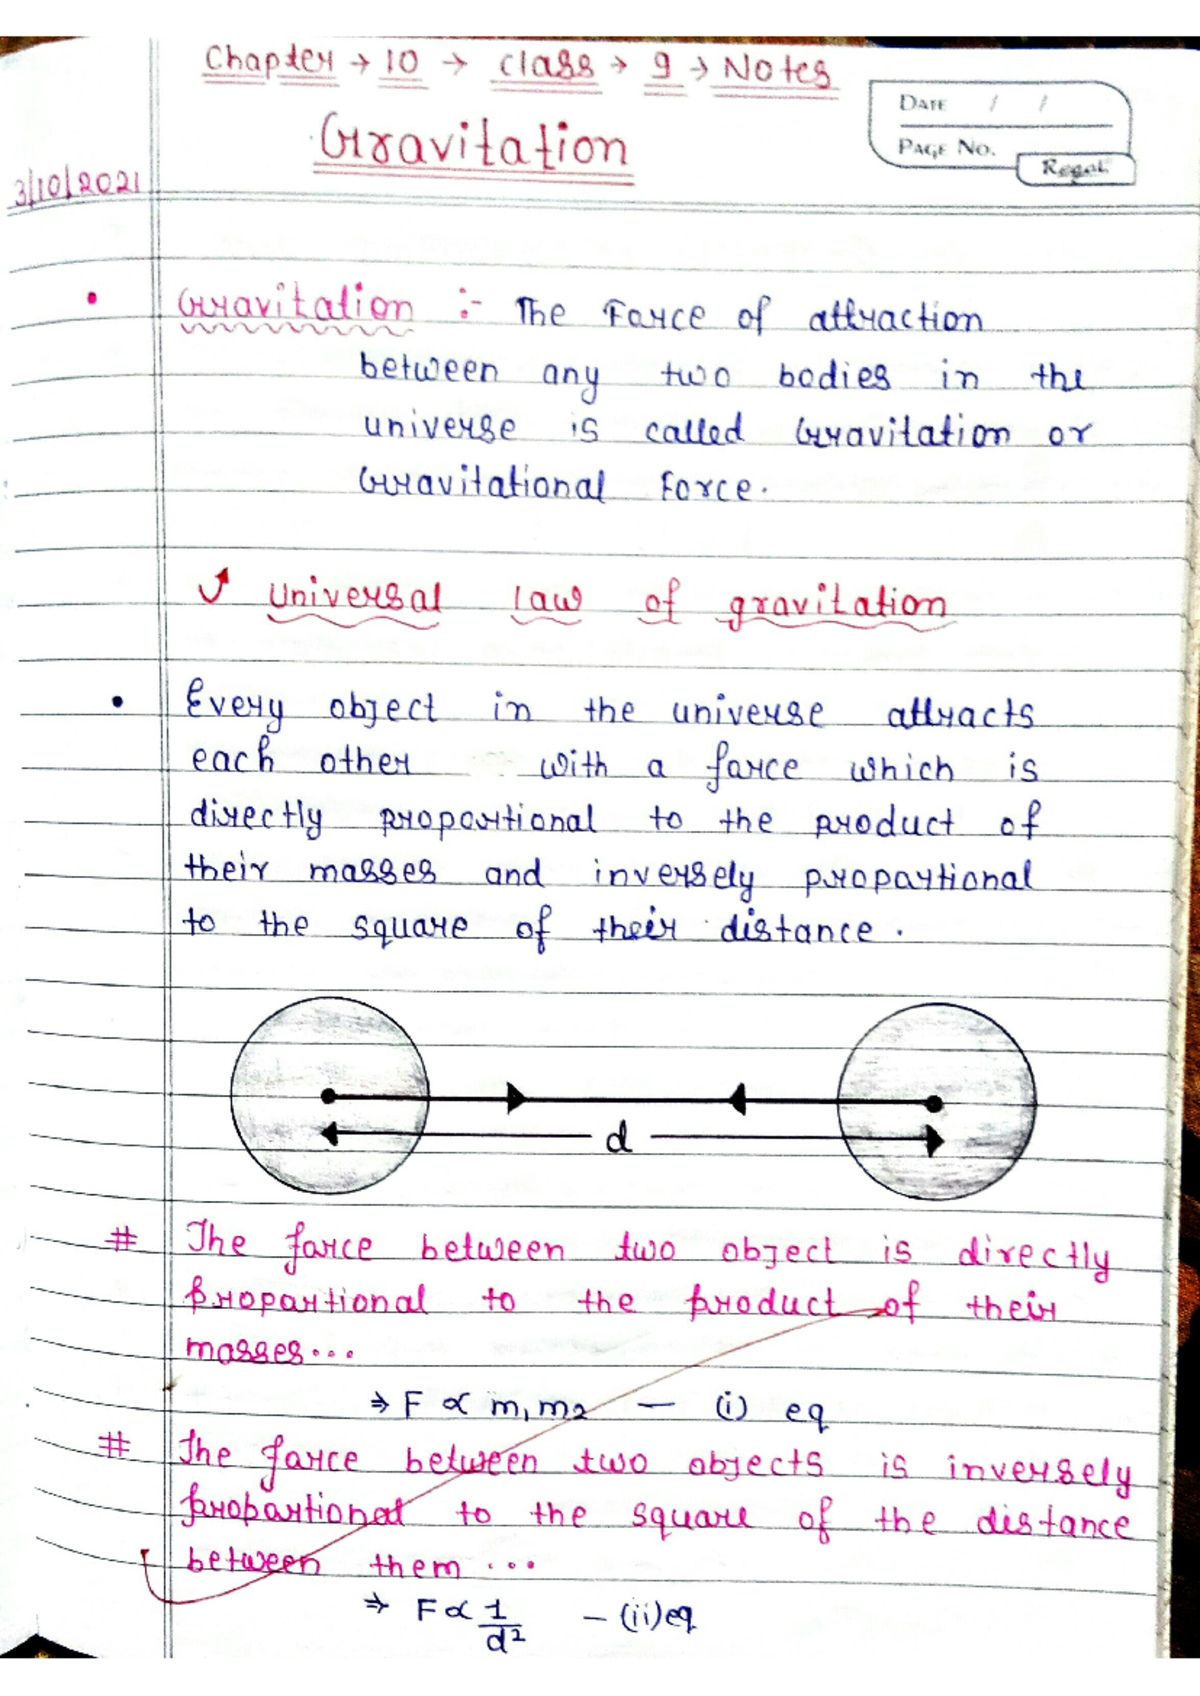 Chapter → 10 → class → 9 → Notes
Gravitation
DATE / /
PAGE NO.
Regal
3/10/2021
• Gravitation :- The Force of attraction
between any two bodies in the
universe is called Gravitation or
Gravitational Force.
Universal law of gravitation
• Every object in the universe attracts
each other with a force which is
directly proportional to the product of
their masses and inversely proportional
to the square of their distance.
d
# The force between two object is directly
proportional to the product of their
masses...
⇒ F ∝ m1m2 — (i) eq
# The force between two objects is inversely
proportional to the square of the distance
between them ...
⇒ F ∝ 1/d² — (ii) eq